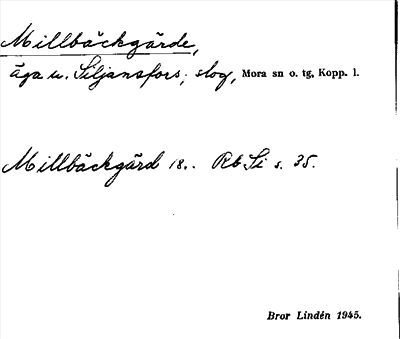 Millbäckgärde,
äga u. Siljansfors; slog, Mora sn o. tg, Kopp. l.
Millbäckgärd 18.. Rb Si s. 35.
Bror Lindén 1945.